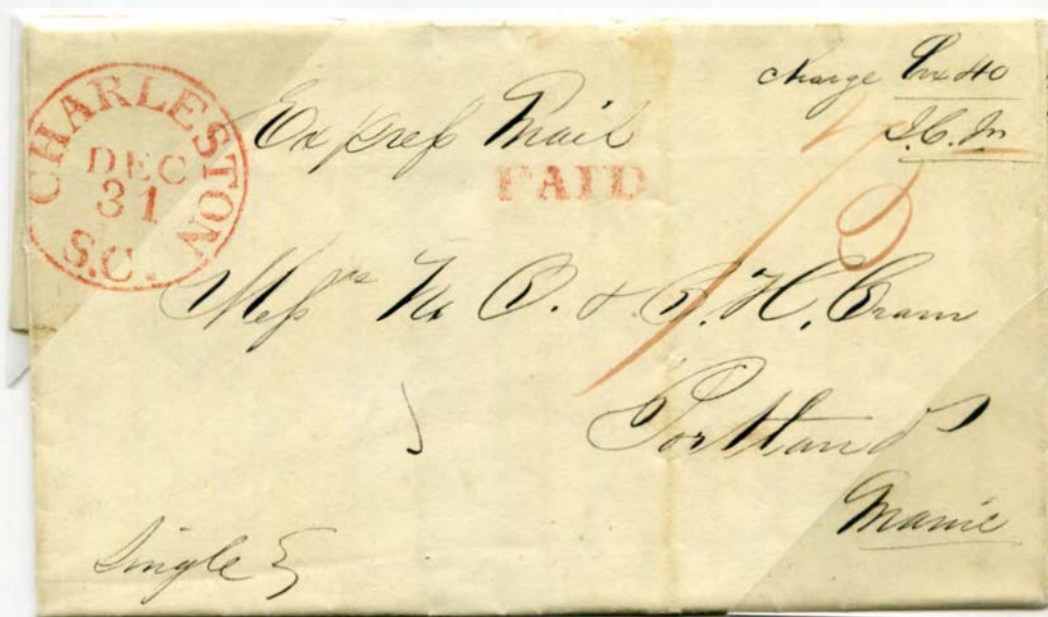 CHARLESTON
DEC
31
S.C.
Express Mail
PAID
charge Box 40
Mess rs & H. Cram
Portland
Maine
Single